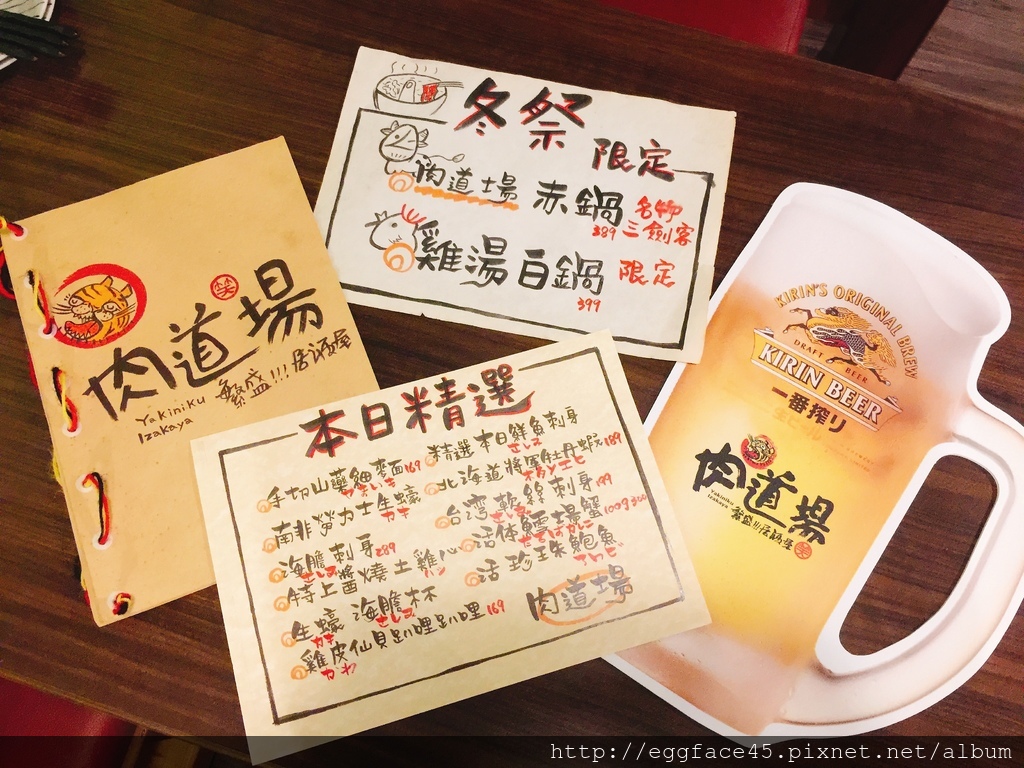 冬祭
限定
肉道場 赤鍋 名物
389 三劍客
雞湯白鍋 限定
399
笑
肉道場
Yakiniku
Izakaya
繁盛!!!居酒屋
本日精選
手切山藥細麵 169
南非勞力士生蠔
カキ
海膽刺身 289
特上醬燒土雞心
ハツ
生蠔 海膽杯
カキ
雞皮仙貝趴哩趴哩 169
カワ
精選本日鮮魚刺身
北海道將軍牡丹蝦 189
台灣軟絲刺身 199
活体鱈場蟹 100g300
活珍珠鮑魚
肉道場
KIRIN'S ORIGINAL BREW
DRAFT BEER
KIRIN BEER
一番搾り
生ビール
肉道場
Yakiniku
Izakaya
繁盛!!!居酒屋
笑
http://eggface45.pixnet.net/album